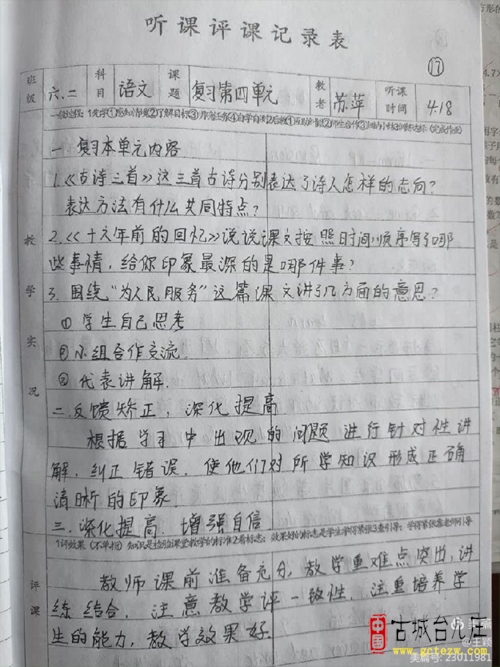 听课评课记录表
⑰
班级 六.二 科目 语文 课题 复习第四单元 教者 苏萍 听课时间 4.18
教学实况
一 复习本单元内容
1.《古诗三首》这三首古诗分别表达了诗人怎样的志向?
表达方法有什么共同特点?
2.《十六年前的回忆》说说课文按照时间顺序写了哪
些事情,给你印象最深的是哪件事?
3.围绕"为人民服务"这篇课文讲了几方面的意思?
① 学生自己思考
②小组合作交流.
③ 代表讲解.
二.反馈矫正,深化提高
根据学习中出现的问题进行针对性讲
解,纠正错误,使他们对所学知识形成正确
清晰的印象.
三.深化提高.增强自信.
评课
教师课前准备充分,教学重难点突出,讲
练结合.注意教学评一致性.注重培养学
生的能力,教学效果好.
中国 古城台儿庄
www.gctezw.com
美篇号:23011981